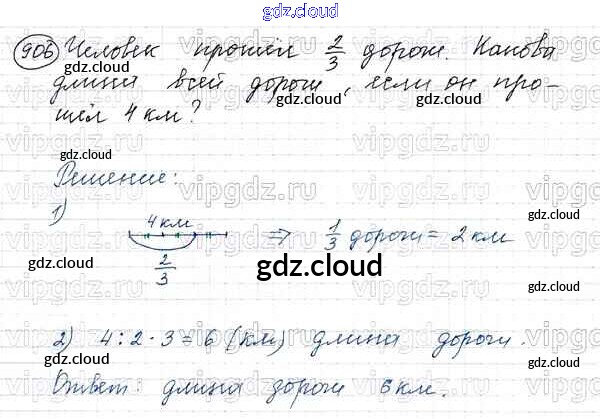 gdz.cloud
906 Человек прошёл 2/3 дороги. Какова
gdz.cloud
длина всей дороги, если он про-
gdz.cloud gdz.cloud
шёл 4 км?
vipgdz vipgdz vipgdz
gdz.cloud
gdz.cloud
Решение:
vipgdz vipgdz vipgdz
1)
gdz.cloud
4 км
⇒ 1/3 дороги = 2 км
2/3
gdz.cloud
gdz.cloud
gdz.cloud
vipgdz vipgdz vipgdz
gdz.cloud
2) 4 : 2 · 3 = 6 (км) длина дороги.
gdz.cloud
gdz.cloud
Ответ: длина дороги 6 км.
gdz.cloud